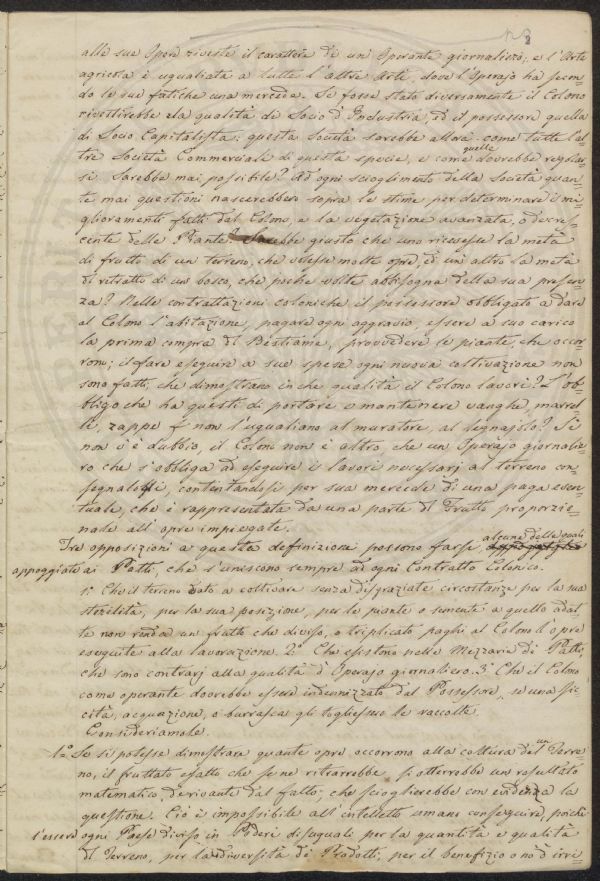 n 8
alle sue Opere riveste il carattere di un Operante giornaliero; e l'Arte
agricola è ugualiata a tutte l'altre Arte, dove l'Operajo ha secon=
do le sue fatiche una mercede. Se fosse stato diversamente il Colono
rivestirebbe la qualità di Socio d'Industria, ed il possessore quella
di Socio Capitalista: questa Società sarebbe allora come tutte l'al=
tre Società Commerciale di questa specie, e come quelle dovrebbe regolar=
si. Sarebbe mai possibile? Ad ogni scioglimento della Società quan=
te mai questioni nascerebbero sopra le stime per determinare i mi=
glioramenti fatti dal Colono, e la vegetazione avanzata, o decres=
cente delle Piante? Sarebbe giusto che uno ricevesse la metà
di frutti di un terreno, che volesse molte opre, e di un altro la metà
di ritratto di un bosco, che poche volte abbisogna della sua presen=
za? Nelle contrattazioni coloniche il possessore obbligato a dare
al Colono l'abitazione, pagare ogni aggravio, essere a suo carico
la prima compra del Bestiame, provvedere le piante, che occor=
rono; il fare eseguire a sue spese ogni nuova coltivazione non
sono fatti, che dimostrano in che qualità il Colono lavori? L'ob=
bligo che ha questi di portare e mantenere vanghe, marrel=
li, zappe non l'uguagliano al muratore, al legnajolo? Se
non v'è dubbio, il Colono non è altro, che un Operajo giornalie=
ro che s'obbliga ad eseguire i lavori necessarj al terreno con=
segnatoli, contentandosi per sua mercede di una paga even=
tuale, che è rappresentata da una parte di Frutto proporzio=
nale all'opre impiegate.
Tre opposizioni a questa definizione possono farse, alcune delle quali
appoggiate ai Patti, che s'uniscono sempre ad ogni Contratto Colonico.
1.° Che il terreno dato a coltivare senza disgraziate circostanze per la sua
sterilità, per la sua posizione, per le piante o semente a quello adat=
te non renda un frutto che diviso, o triplicato paghi al Colono l'opre
eseguite alla lavorazione. 2.° Che esistono nelle Mezzarie di Patti,
che sono contrarj alla qualità d'Operajo giornaliero. 3.° Che il Colono
come operante dovrebbe essere indennizzato dal Possessore, se una sic=
cità, acquazione, o burrasca gli togliessero le raccolte.
Consideriamole.
1.° Se si potesse dimostrare quante opre occorrono alla coltura del un Terre=
no, il fruttato esatto che se ne ritrarrebbe, si otterrebbe un resultato
matematico derivante dal fatto; che scioglierebbe con evidenza la
questione. Ciò è impossibile all'intelletto umano conseguire, poichè
l'essere ogni Paese diviso in Poderi disuguali per la quantità e qualità
di Terreno, per la diversità de Prodotti, per il benefizio o nò d'irri=